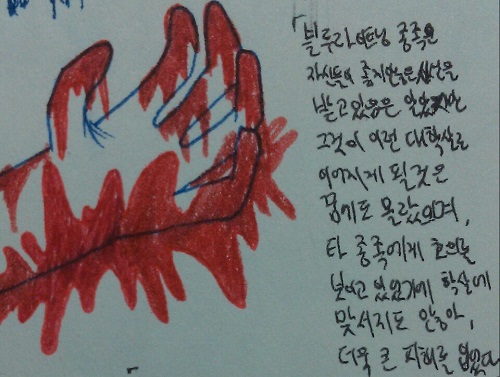 「블루라이트닝 종족은
자신들이 좋지않은 시선을
받고있음은 알았지만
그것이 이런 대학살로
이어지게 될 것은
꿈에도 몰랐으며,
타 종족에게 호의를
보이고 있었기에 학살에
맞서지도 않아,
더욱 큰 피해를 입었다
「